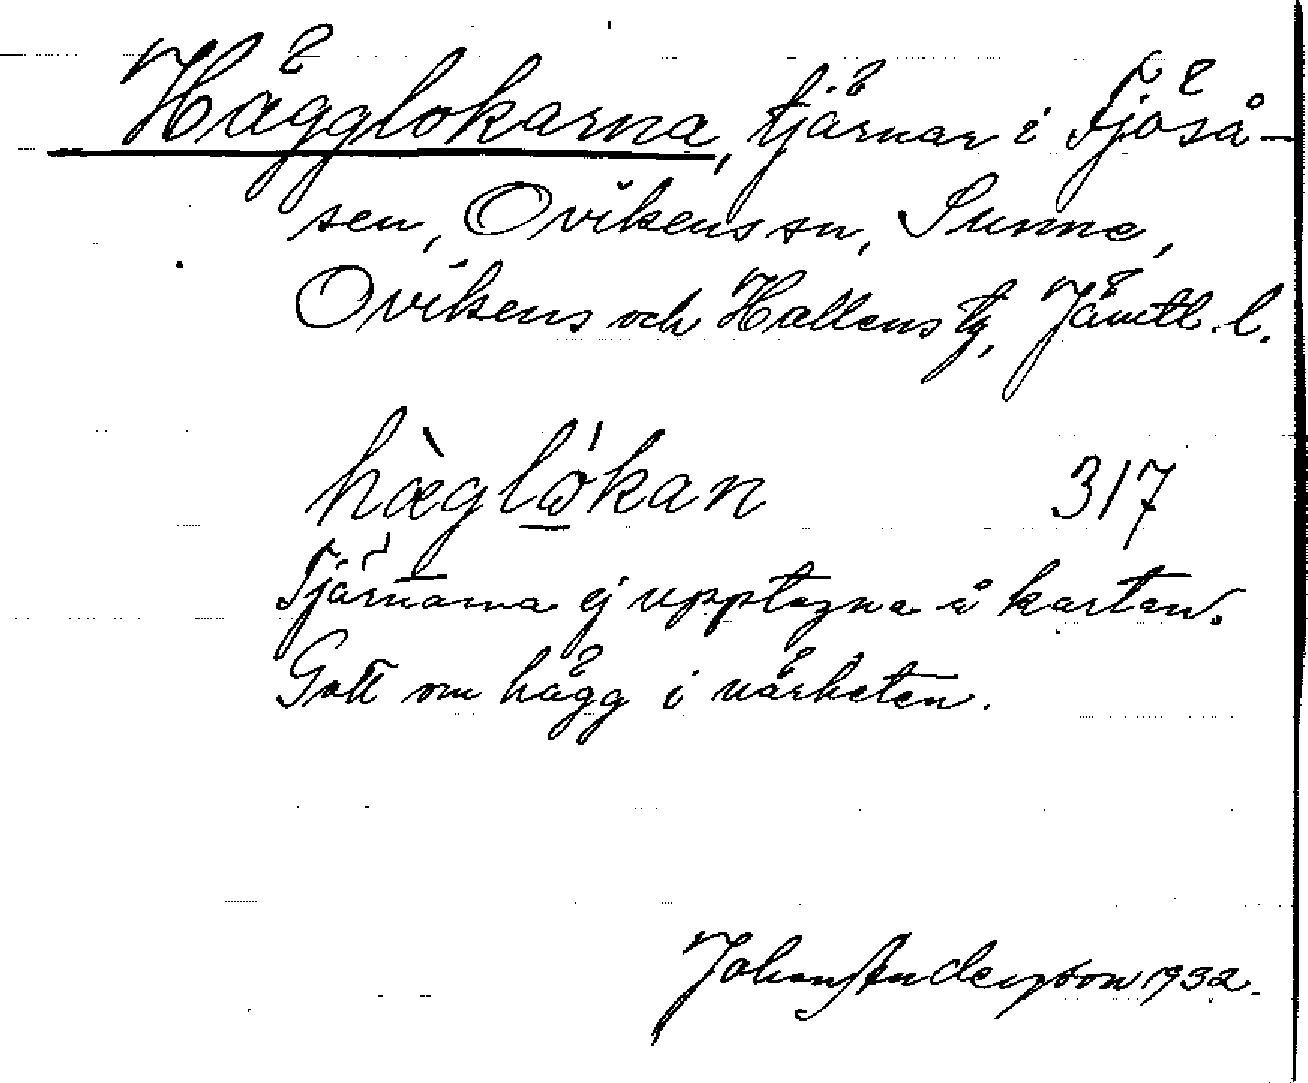 Hägglokarna, tjärnar i Tjöså-
sen, Ovikens sn, Sunne,
Ovikens och Hallens tg, Jämtl. l.
hæ̀glókan 317
Tjärnarna ej upptagna å kartan.
Gott om hägg i närheten.
Johan Anderson 1932.